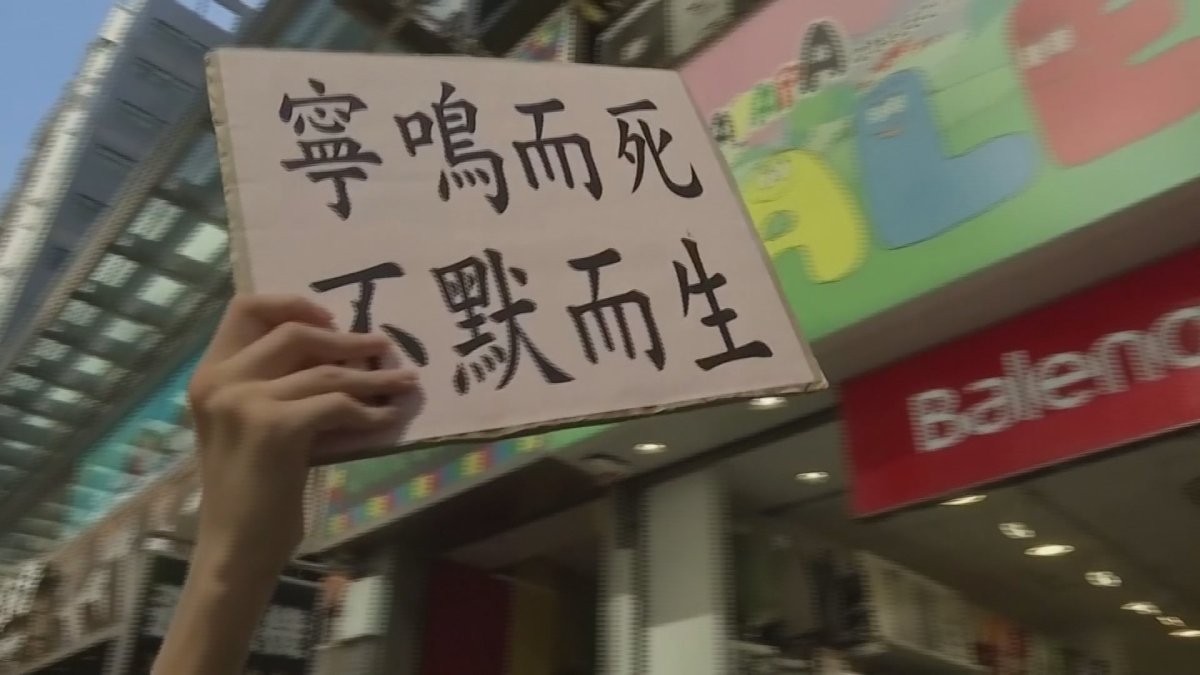 寧鳴而死
不默而生
ALE
Baleno